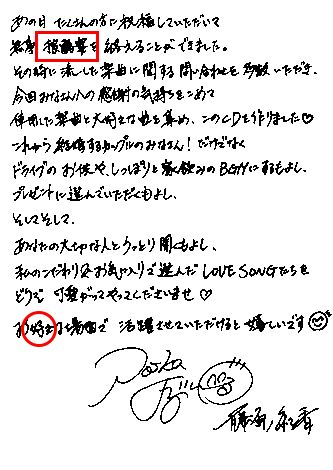 あの日 たくさんの方に祝福していただいて
無事 披露宴を終えることができました。
その時に流した楽曲に関する問い合わせを多数いただき、
今回みなさんへの感謝の気持ちをこめて
使用した楽曲と大好きな曲を集め、このCDを作りました♡
これから結婚するカップルのみなさん!だけでなく
ドライブのお供や、しっぽりと家飲みのBGMにするもよし、
プレゼントに選んでいただくもよし、
そしてそして、
あなたの大切な人とうっとり聞くもよし、
私のこだわり&お気に入りで選んだLOVE SONGたちを
どうぞ 可愛がってやってくださいませ♡
お好きな場面で 活躍させていただけると嬉しいです
藤原紀香